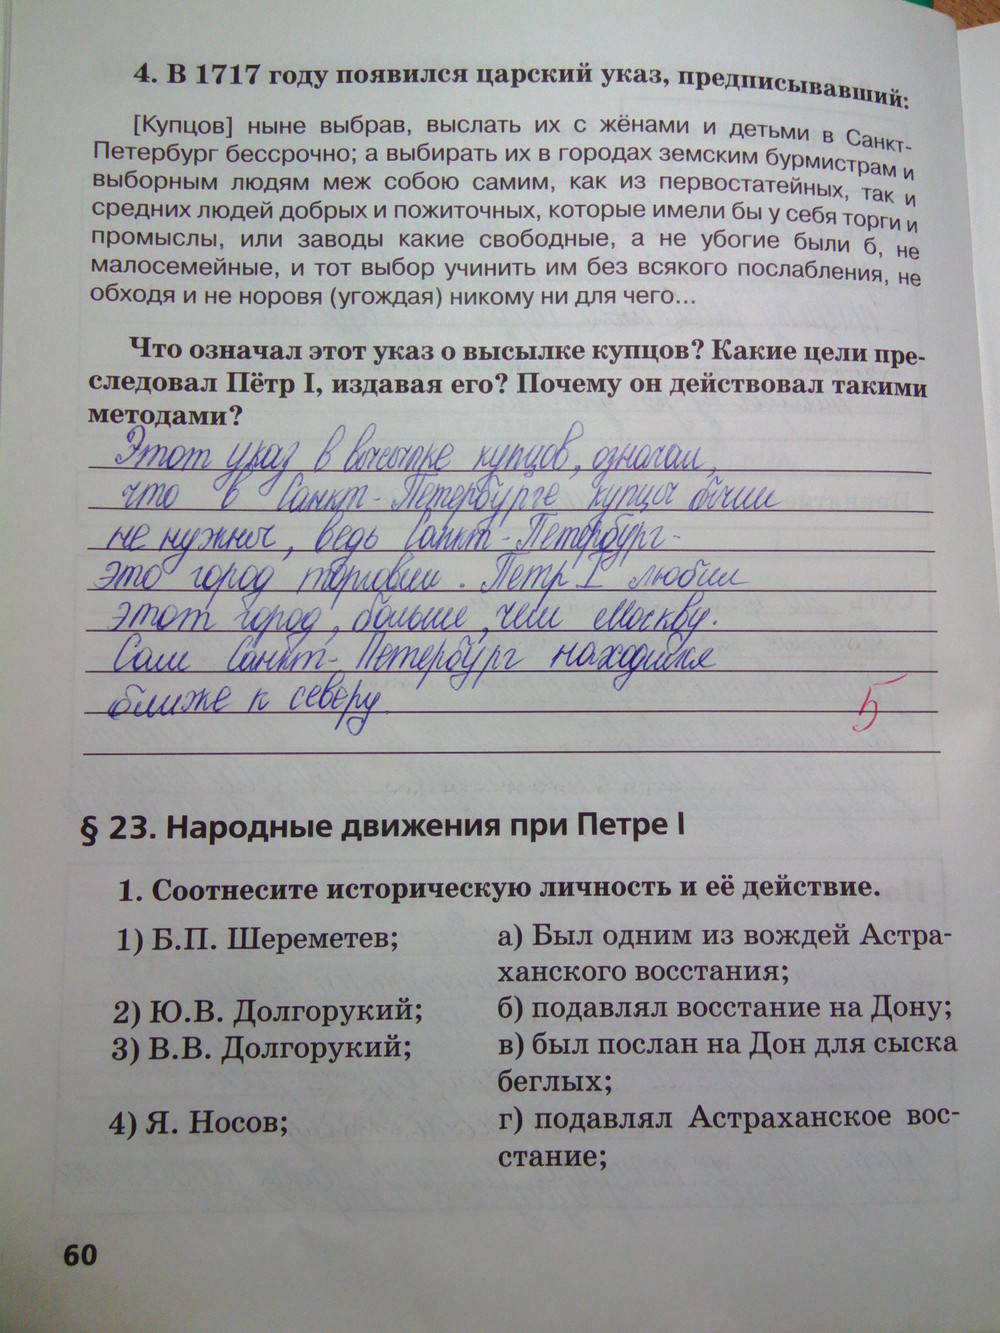 4. В 1717 году появился царский указ, предписывавший:
[Купцов] ныне выбрав, выслать их с жёнами и детьми в Санкт-
Петербург бессрочно; а выбирать их в городах земским бурмистрам и
выборным людям меж собою самим, как из первостатейных, так и
средних людей добрых и пожиточных, которые имели бы у себя торги и
промыслы, или заводы какие свободные, а не убогие были б, не
малосемейные, и тот выбор учинить им без всякого послабления, не
обходя и не норовя (угождая) никому ни для чего...
Что означал этот указ о высылке купцов? Какие цели пре-
следовал Пётр I, издавая его? Почему он действовал такими
методами?
Этот указ в высылке купцов, означал,
что в Санкт-Петербурге купцы были
не нужны, ведь Санкт-Петербург-
это город торговли. Петр I любил
этот город, больше, чем Москву.
Сам Санкт-Петербург находился
ближе к северу
5
§ 23. Народные движения при Петре I
1. Соотнесите историческую личность и её действие.
1) Б.П. Шереметев;
а) Был одним из вождей Астра-
ханского восстания;
2) Ю.В. Долгорукий;
б) подавлял восстание на Дону;
3) В.В. Долгорукий;
в) был послан на Дон для сыска
беглых;
4) Я. Носов;
г) подавлял Астраханское вос-
стание;
60